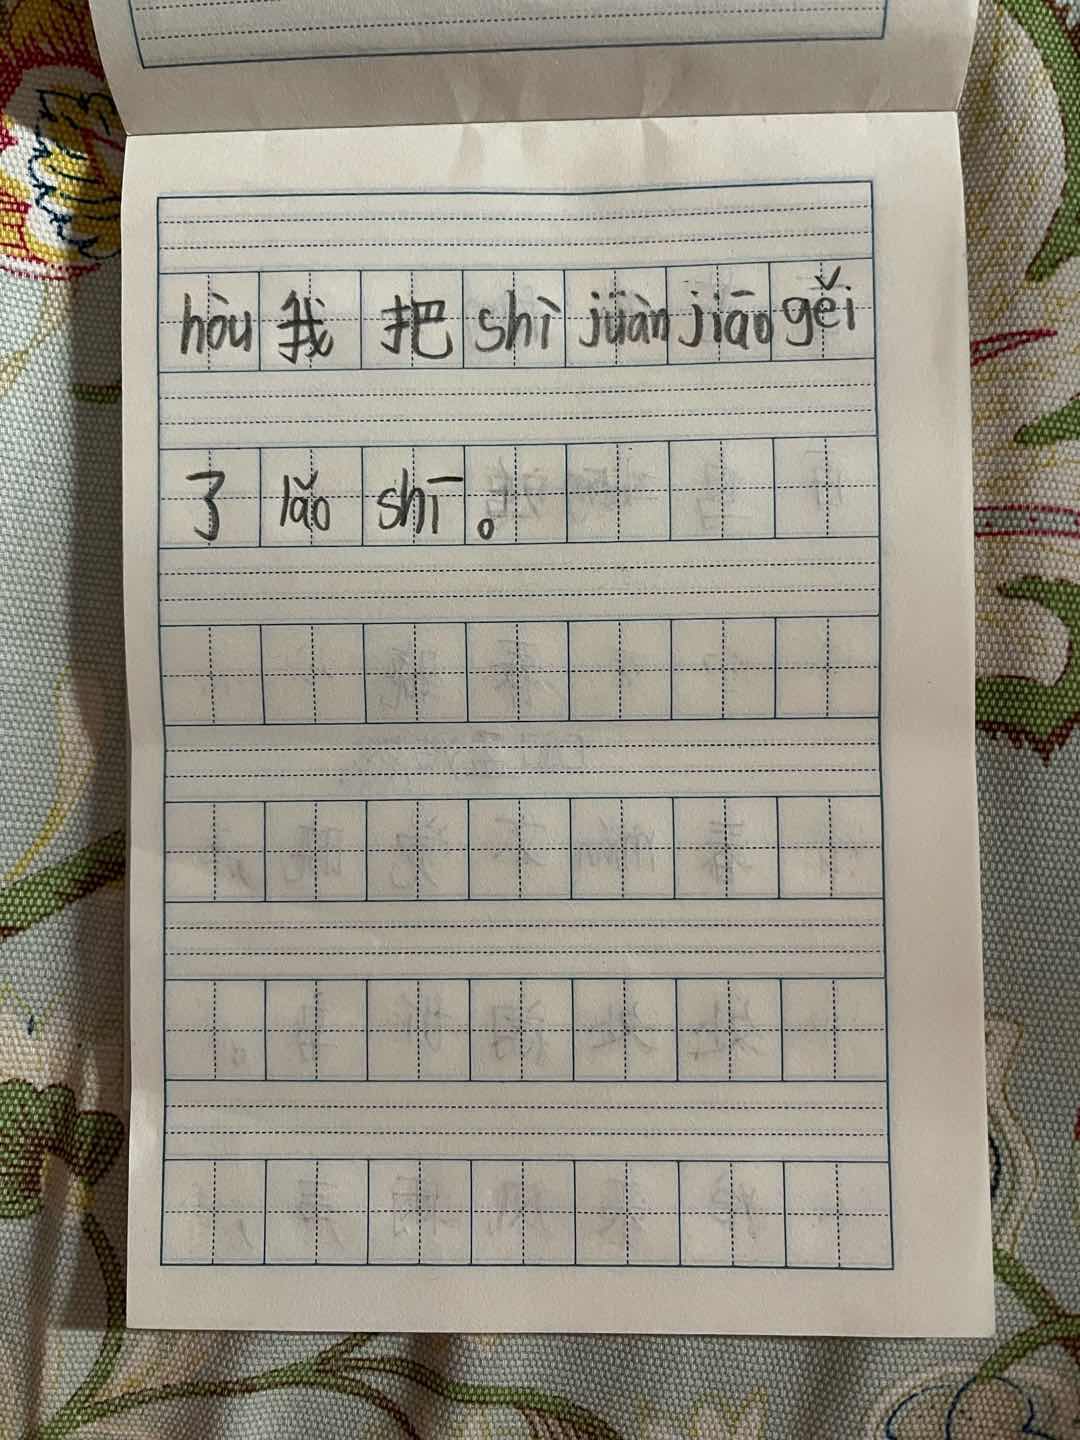 hòu 我 把 shì jüàn jiāo gěi
了 lǎo shī 。